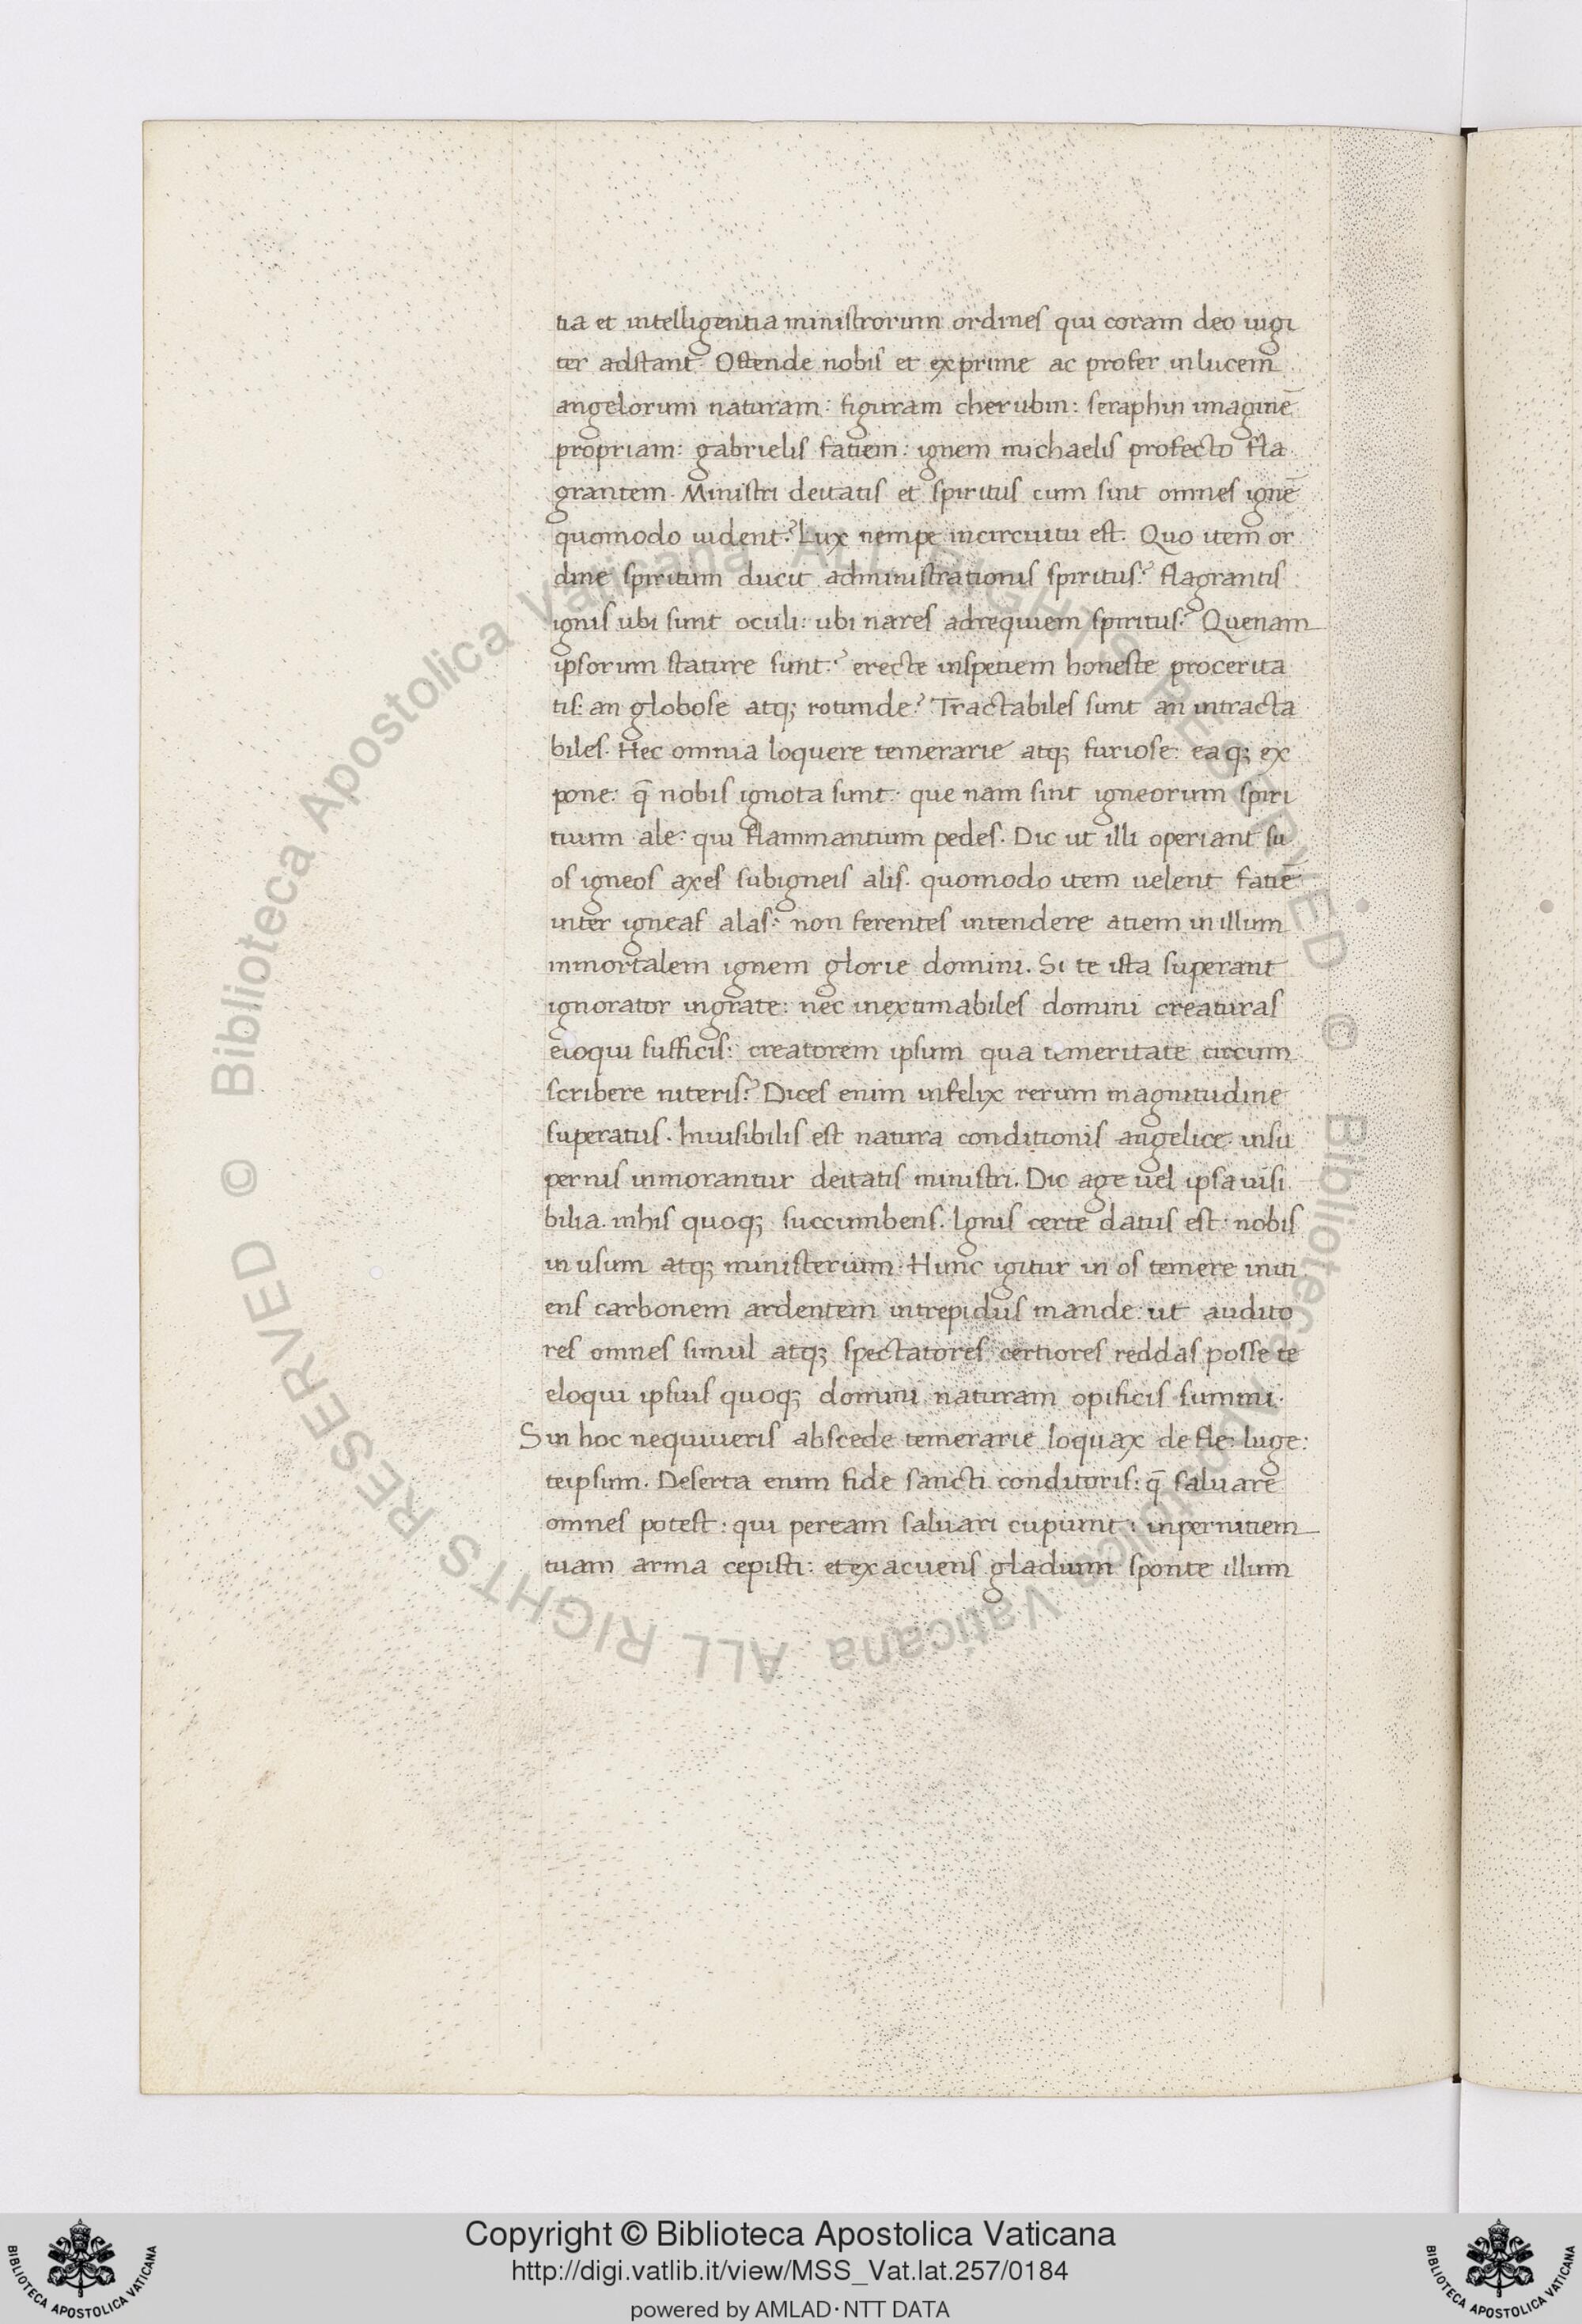 tia et intelligentia ministrorum ordines qui coram deo iugi
ter adstant. Ostende nobis et exprime ac profer in lucem
angelorum naturam: figuram cherubin: seraphin imaginē
propriam: gabrielis fatiem: ignem michaelis profecto fla
grantem. Ministri deitatis et spiritus cum sint omnes ignē
quomodo uident? Lux nempe incircuitu est. Quo item or
dine spiritum ducit administrationis spiritus? flagrantis
ignis ubi sunt oculi: ubi nares adrequiem spiritus? Quenam
ipsorum stature sunt? erecte inspetiem honeste procerita
tis: an globose atq; rotunde? Tractabiles sunt an intracta
biles. Hec omnia loquere temerarie atq; furiose: eaq; ex
pone: q̄ nobis ignota sunt: que nam sint igneorum spiri
tuum ale: qui flammantium pedes. Dic ut illi operiant su
os igneos axes subigneis alis. quomodo item uelent fatiē
inter igneas alas: non ferentes intendere atiem in illum
inmortalem ignem glorie domini. Si te ista superant
ignorator ingrate: nec inextimabiles domini creaturas
eloqui sufficis: creatorem ipsum qua temeritate circum
scribere niteris? Dices enim infelix rerum magnitudine
superatus. Inuisibilis est natura conditionis angelice: insu
pernis inmorantur deitatis ministri. Dic age uel ipsa uisi
bilia. inhis quoq; succumbens. Ignis certe datus est: nobis
in usum atq; ministerium. Hunc igitur in os temere initi
ens carbonem ardentem intrepidus mande: ut audito
res omnes simul atq; spectatores certiores reddas posse te
eloqui ipsius quoq; domini naturam opificis summi.
Sin hoc nequiueris abscede temerarie loquax defle: luge:
teipsum. Deserta enim fide sancti conditoris: q̄ saluare
omnes potest: qui peream saluari cupiunt: inpernitiem
tuam arma cepisti: et exacuens gladium sponte illum
Copyright © Biblioteca Apostolica Vaticana
http://digi.vatlib.it/view/MSS_Vat.lat.257/0184
powered by AMLAD·NTT DATA
BIBLIOTECA APOSTOLICA VATICANA
BIBLIOTECA APOSTOLICA VATICANA
© Biblioteca Apostolica Vaticana ALL RIGHTS RESERVED © Biblioteca Apostolica Vaticana ALL RIGHTS RESERVED